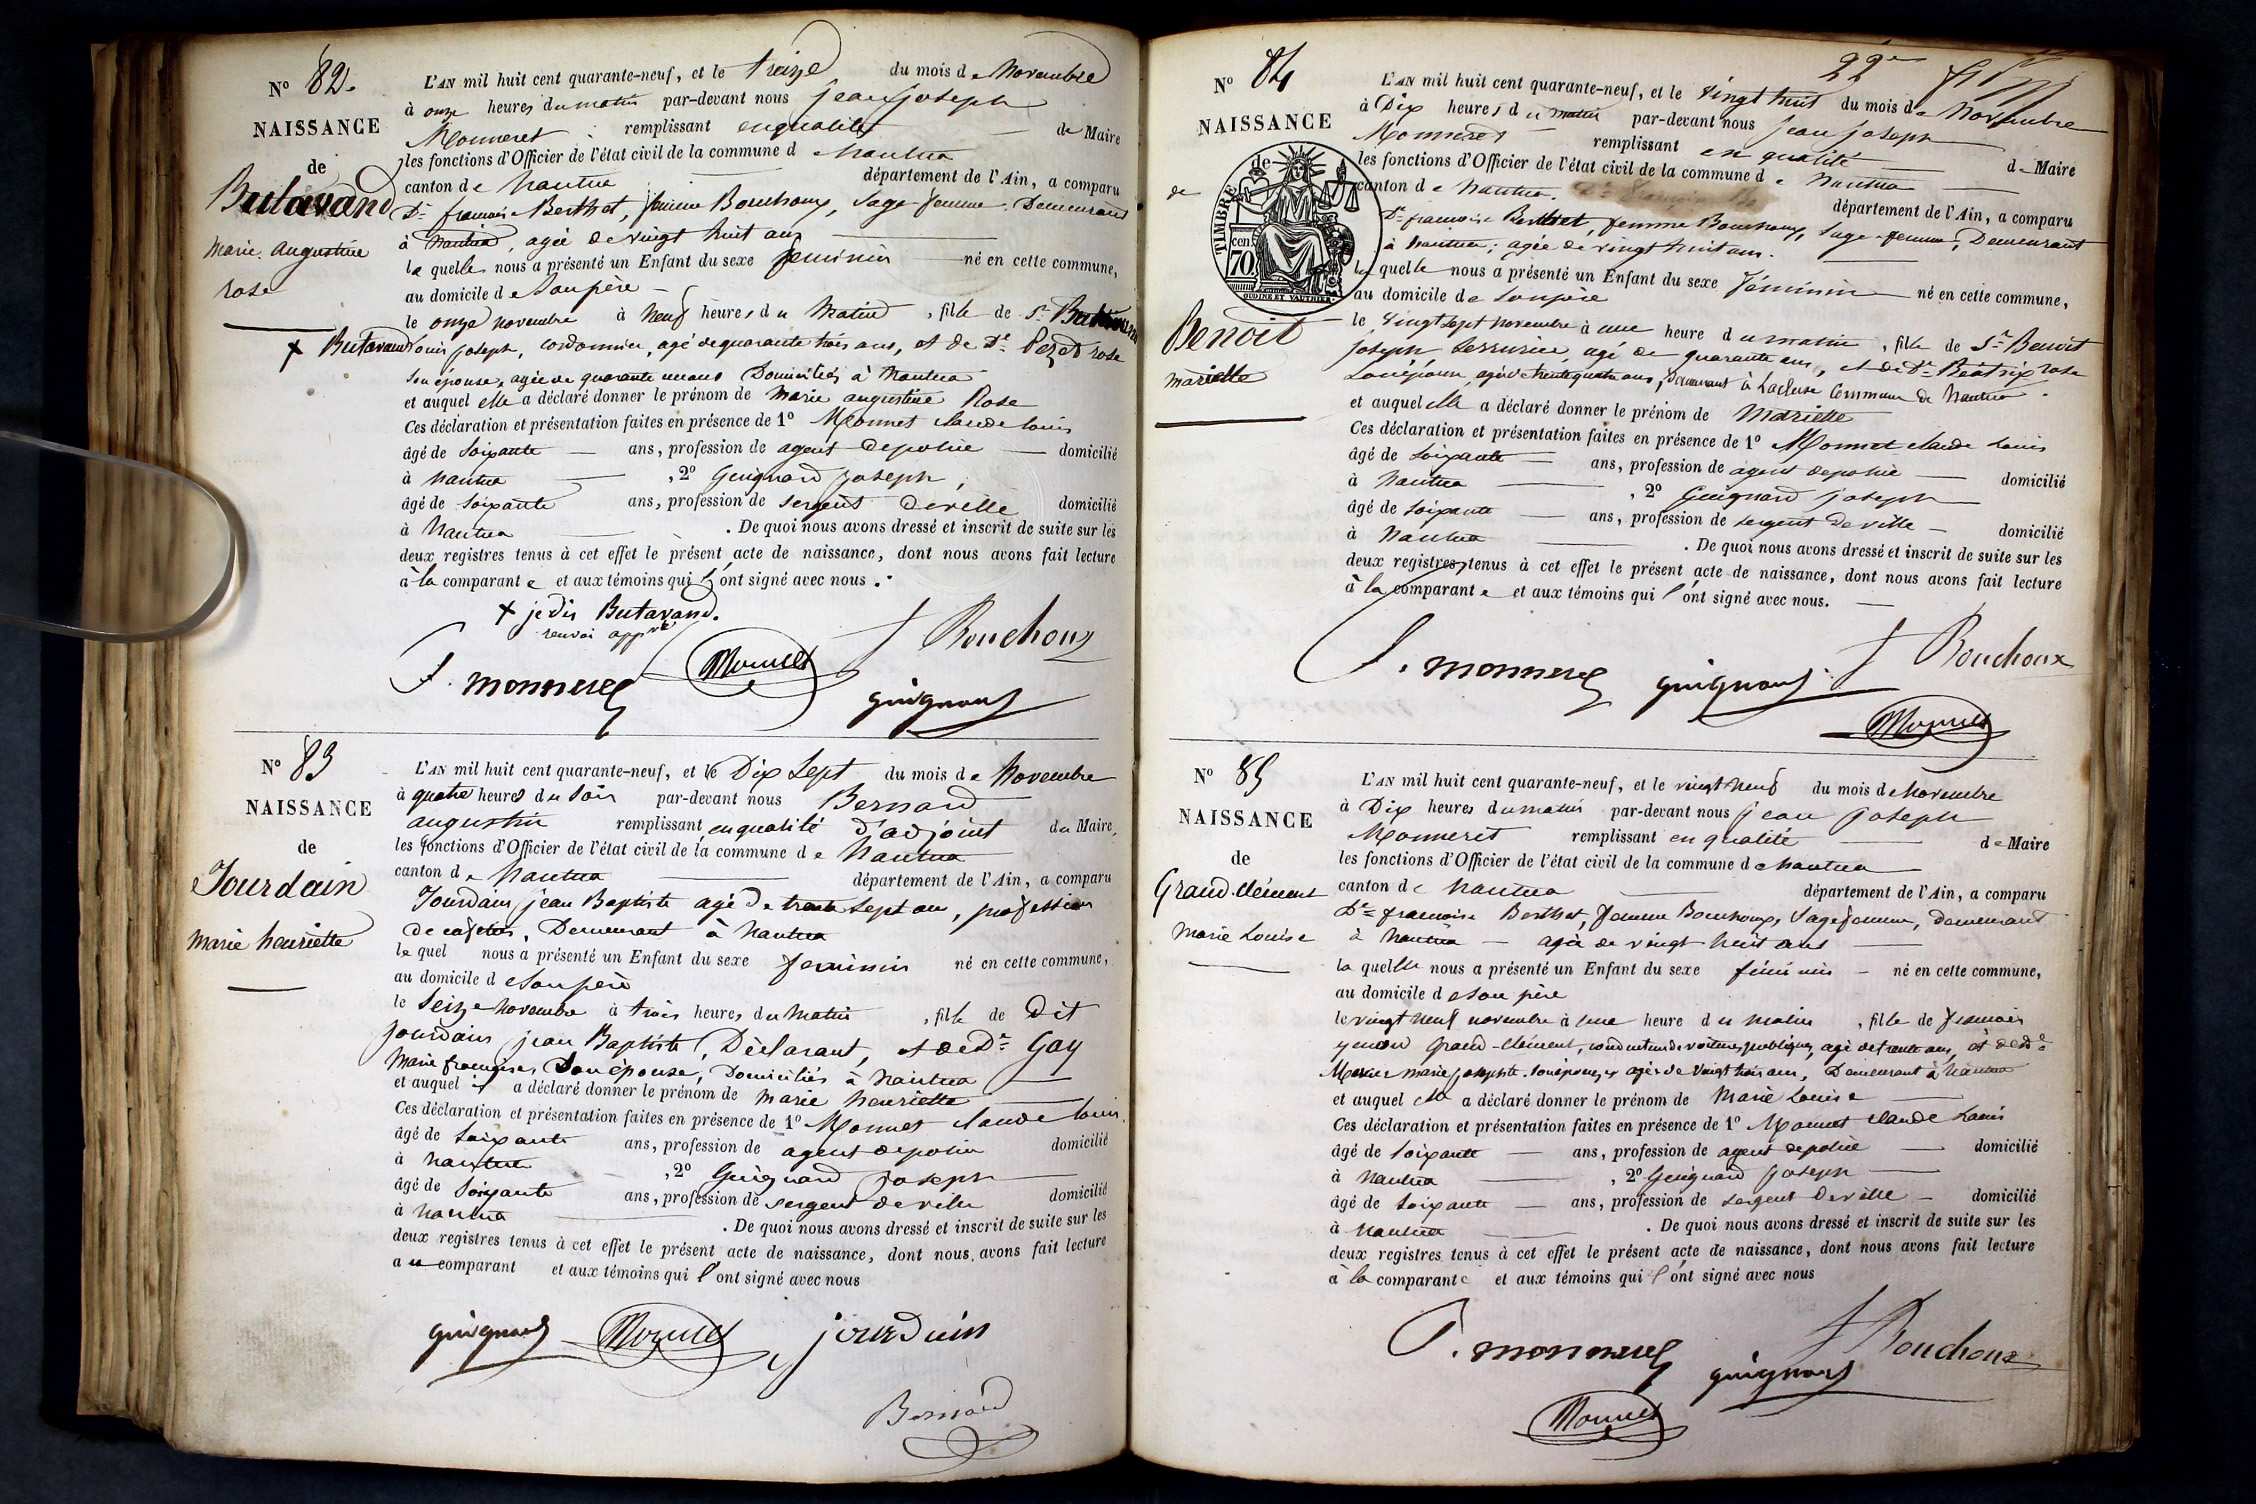 N° 82.
NAISSANCE
de
Butavand
marie augustine
rose
L'AN mil huit cent quarante-neuf, et le treize du mois de Novembre
à onze heures du matin par-devant nous jean joseph
Monneret remplissant en qualité de Maire
les fonctions d'Officier de l'état civil de la commune d nantua
canton de nantua département de l'Ain, a comparu
De francoise Berthet, femme Bouchoux, Sage femme Demeurant
à nantua, agée de vingt huit ans
la quelle nous a présenté un Enfant du sexe feminin né en cette commune,
au domicile de son père
le onze novembre à neuf heures du Matin, fille de Sr
+ Butavand Louis joseph, cordonnier, agé de quarante trois ans, et de De rose
son épouse, agée de quarante un ans Domiciliés à Nantua
et auquel elle a déclaré donner le prénom de Marie augustine Rose
Ces déclaration et présentation faites en présence de 1° Monnet claude louis
âgé de Soixante ans, profession de agent de police domicilié
à nantua , 2° Guignard joseph,
âgé de soixante ans, profession de sergent de ville domicilié
à Nantua . De quoi nous avons dressé et inscrit de suite sur les
deux registres tenus à cet effet le présent acte de naissance, dont nous avons fait lecture
à la comparante et aux témoins qui l'ont signé avec nous.
+ je dis Butavand.
renvoi appvé
J. monneret Monnet f Bouchoux
guignard
N° 83
NAISSANCE
de
Jourdain
marie henriette
L'AN mil huit cent quarante-neuf, et le Dix Sept du mois de Novembre
à quatre heures du Soir par-devant nous Bernard
augustin remplissant en qualité d'adjoint du Maire,
les fonctions d'Officier de l'état civil de la commune de Nantua
canton de Nantua département de l'Ain, a comparu
Jourdain jean Baptiste agé de trente Sept ans, profession
de cafetier, Demeurant à Nantua
le quel nous a présenté un Enfant du sexe feminin né en cette commune,
au domicile de son père
le Seize novembre à trois heures du Matin , fille de dit
jourdain jean Baptiste, Déclarant, et de De Gay
Marie françoise, Son épouse, Domiciliés à nantua
et auquel il a déclaré donner le prénom de marie henriette
Ces déclaration et présentation faites en présence de 1° Monnet claude louis
âgé de Soixante ans, profession de agent de police domicilié
à nantua , 2° Guignard joseph
âgé de Soixante ans, profession de sergent de ville domicilié
à nantua . De quoi nous avons dressé et inscrit de suite sur les
deux registres tenus à cet effet le présent acte de naissance, dont nous avons fait lecture
au comparant et aux témoins qui l'ont signé avec nous
guignard Monnet jourdain
Bernard
22e
N° 84
NAISSANCE
de
TIMBRE
cen.
70
OUDINE ET VAUTHIER
de
Benoit
marielle
L'AN mil huit cent quarante-neuf, et le vingt huit du mois de Novembre
à Dix heures du matin par-devant nous jean joseph
Monneret remplissant en qualité de Maire
les fonctions d'Officier de l'état civil de la commune de Nantua
canton de nantua. département de l'Ain, a comparu
De francoise Berthet, femme Bouchoux, Sage-femme, Demeurant
à nantua; agée de vingt huit ans.
la quelle nous a présenté un Enfant du sexe féminin né en cette commune,
au domicile de son père
le vingt sept novembre à une heure du matin , fille de Sr Benoit
joseph serrurier, agé de quarante ans, et de De Béatrix rose
son épouse, agée de trente quatre ans, demeurant à Lacluse Commune de Nantua.
et auquel elle a déclaré donner le prénom de Marielle
Ces déclaration et présentation faites en présence de 1° Monnet claude louis
âgé de soixante ans, profession de agent de police domicilié
à nantua , 2° Guignard joseph
âgé de soixante ans, profession de sergent de ville domicilié
à nantua . De quoi nous avons dressé et inscrit de suite sur les
deux registres tenus à cet effet le présent acte de naissance, dont nous avons fait lecture
à la comparante et aux témoins qui l'ont signé avec nous.
J. monneret guignard f Bouchoux
Monnet
N° 85
NAISSANCE
de
Grand-clément
Marie Louise
L'AN mil huit cent quarante-neuf, et le vingt neuf du mois de Novembre
à Dix heures du matin par-devant nous jean joseph
Monneret remplissant en qualité de Maire
les fonctions d'Officier de l'état civil de la commune de nantua
canton de nantua département de l'Ain, a comparu
De francoise Berthet, femme Bouchoux, Sage femme, demeurant
à nantua agée de vingt huit ans
la quelle nous a présenté un Enfant du sexe féminin né en cette commune,
au domicile de son père
le vingt neuf novembre à une heure du matin , fille de francois
grand-clément, conducteur de voitures publiques, agé de trente ans, et de De
Mercier marie josephte son épouse, agée de vingt trois ans, Demeurant à nantua
et auquel elle a déclaré donner le prénom de Marie Louise
Ces déclaration et présentation faites en présence de 1° Monnet claude Louis
âgé de soixante ans, profession de agent de police domicilié
à nantua , 2° Guignard joseph
âgé de soixante ans, profession de sergent de ville domicilié
à nantua . De quoi nous avons dressé et inscrit de suite sur les
deux registres tenus à cet effet le présent acte de naissance, dont nous avons fait lecture
à la comparante et aux témoins qui l'ont signé avec nous
J. monneret guignard f Bouchoux
Monnet